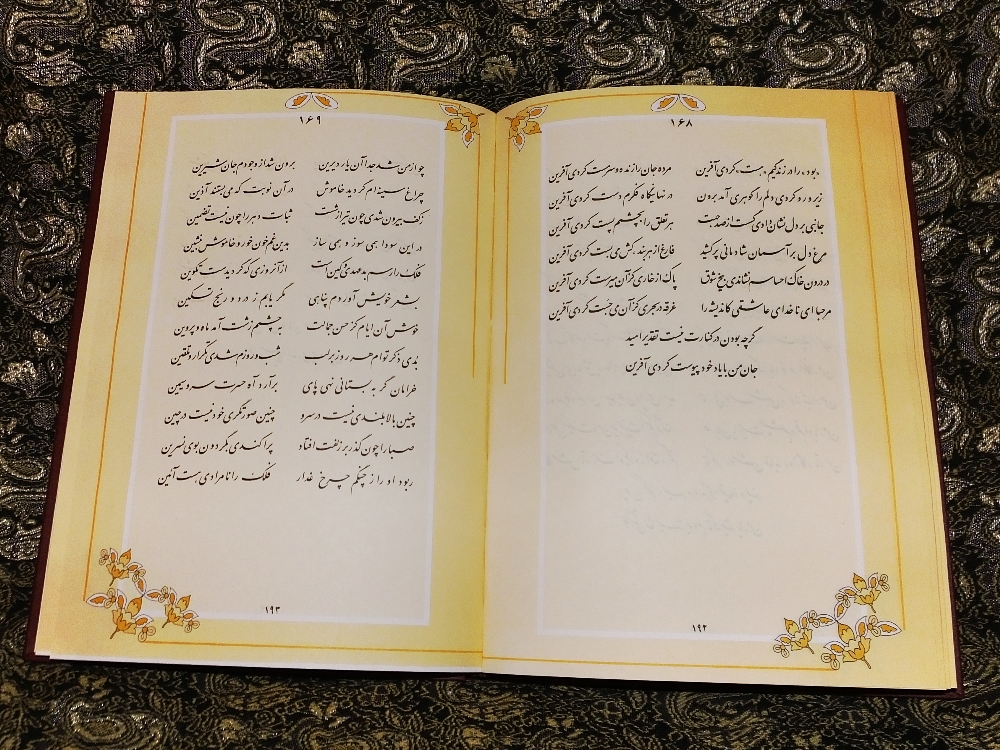 ۱۶۸
«بود» را در زندگیم «هست» کردی آفرین مرده جان را زنده و سرمست کردی آفرین
زیر و رو کردی دلم را گوهری آمد برون در نهانگاه فکرم دست کردی آفرین
جانبی بر دل نشان دادی گست از صد جهت هر تعلق را به چشمم پست کردی آفرین
مرغ دل بر آسمان شادمانی پر کشید فارغ از هر بند کش می‌بست کردی آفرین
در درون خاک احساسم نشاندی بیخ شوق پاک از خاری کز آن می‌رست کردی آفرین
مرحبا ای ناخدای عاشقی کاندیشه را غرقه در بحری کز آن می‌جست کردی آفرین
گرچه بودن در کنارت نیست تقدیر امید
جان من با یاد خود پیوست کردی آفرین
۱۹۲
۱۶۹
چو از من شد جدا آن یار دیرین برون شد از وجودم جان شیرین
چراغ سینه‌ام گردید خاموش در آن نوبت که می‌بستند آذین
ز کف بیرون شدی چون تیر از شست ثبات دهر را چون نیست تضمین
در این سودا همی سوز و همی ساز بدین غم خون خور و خاموش بنشین
فلک را رسم بدعهدی کهن است از آن روزی که گردیدست تکوین
بشعر خوش آوردم پناهی مگر یابم ز درد و رنج تسکین
خوش آن ایام کز حسن جمالت به چشمم زشت آمد ماه و پروین
بدی ذکر توام هر روز بر لب شب و روزم شدی تکرار و تلقین
خرامان گر به بستانی نهی پای برآرد آه حسرت سرو سیمین
چنین بالا بلندی نیست در سرو چنین صورتگری خود نیست در چین
صبا را چون گذر بر زلفت افتاد پراکندی بگردون بوی نسرین
ربود او را ز چنگم چرخ غدار فلک را نامرادی هست آئین
۱۹۳